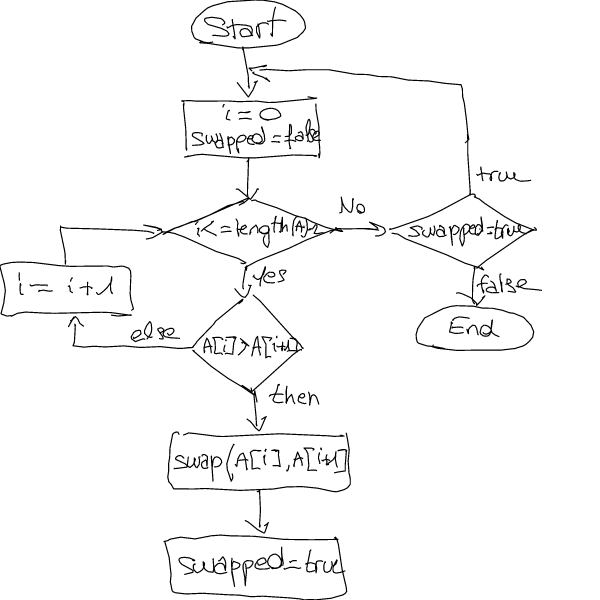 Start
i = 0
swapped = false
i <= length(A)-2
No
true
swapped=true
Yes
false
i = i+1
else
A[i]>A[i+1]
End
then
swap(A[i], A[i+1]
swapped=true